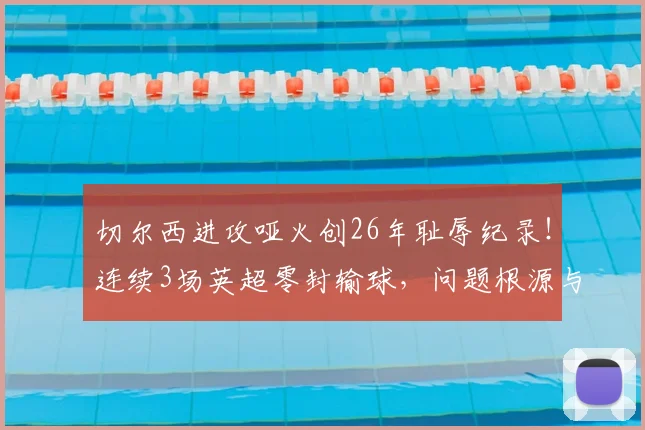 切尔西进攻哑火创26年耻辱纪录！
连续3场英超零封输球，问题根源与